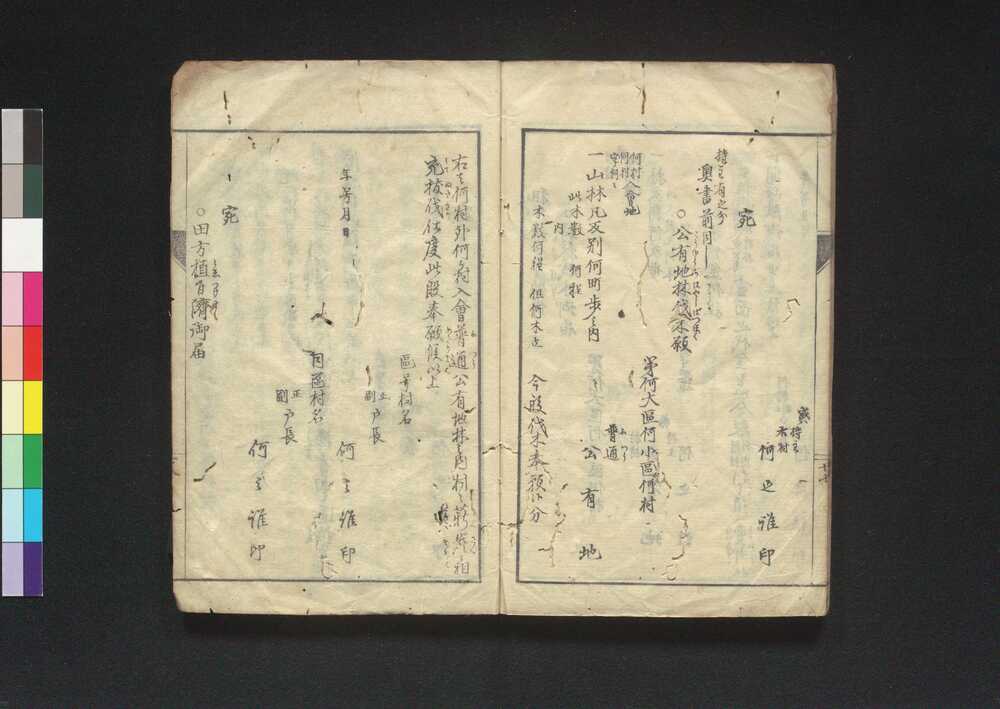 持主
右村 何之誰印
宛
持主有之分
奥書前同シ
○公有地林伐木願
第何大區何小區何村
何村
何村入會地
字何々
普通 公有地
一山林凡反別何町歩之内
此木數 何程
内
木數何程 但何木立 今般伐木奉願候分
右之何村外何ヶ村入會普通公有地林之内
伐仕度此段奉願候以上
區号村名
年号月日 正副戸長 何之誰印
同區村名
正副戸長 何之誰印
宛
○田方植百濟御届